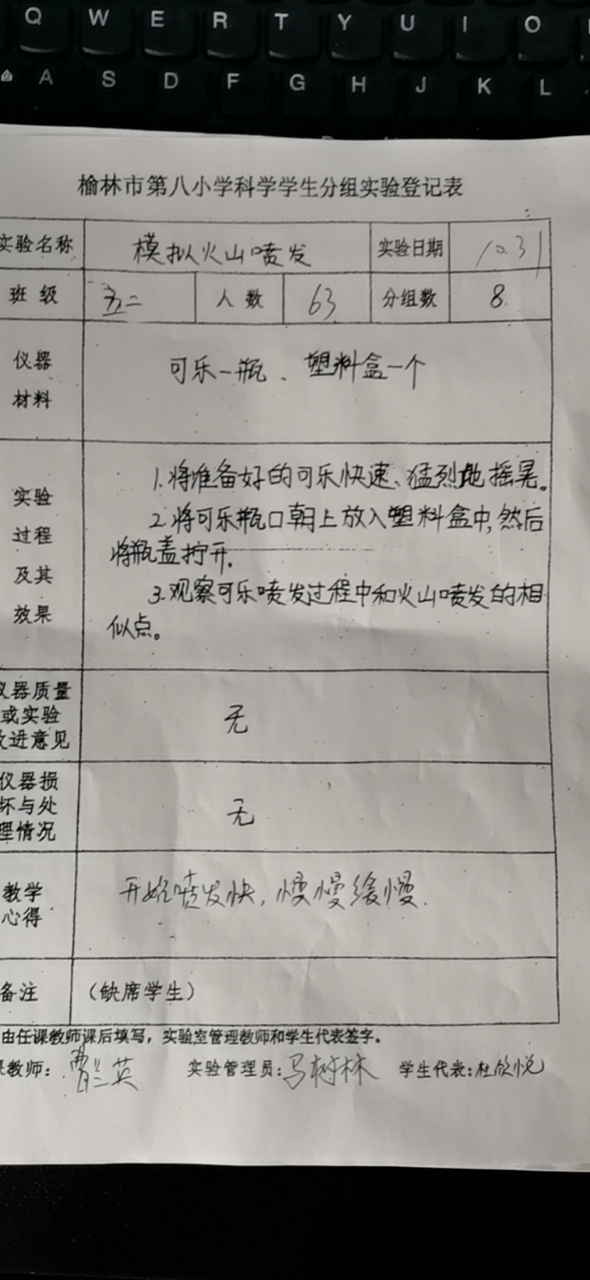 Q W E R T Y U I O
A S D F G H J K L
榆林市第八小学科学学生分组实验登记表
实验名称 模拟火山喷发 实验日期 10.31
班 级 五二 人 数 63 分组数 8.
仪器
材料
可乐一瓶、塑料盒一个
实验
过程
及其
效果
1.将准备好的可乐快速、猛烈地摇晃。
2.将可乐瓶口朝上放入塑料盒中,然后
将瓶盖拧开.
3.观察可乐喷发过程中和火山喷发的相
似点。
仪器质量
或实验
改进意见
无
仪器损
坏与处
理情况
无
教学
心得
开始喷发快,慢慢缓慢.
备注 (缺席学生)
由任课教师课后填写,实验室管理教师和学生代表签字。
课教师: 曹兰英 实验管理员: 马树林 学生代表: 杜欣悦